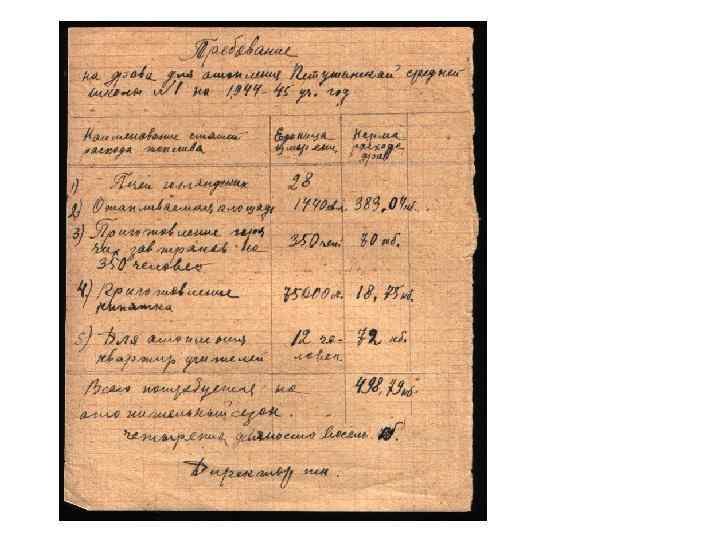 Требование
на дрова для отопления Петушинской средней
школы №1 на 1944-45 уч. год
Наименование статей расхода топлива Единица измерен. Норма расхода дров
1) Печей голландских 28
2) Отапливаемая площадь 1440 кв.м. 383,04 кб.
3) Приготовление горя
чих завтраков на 350 чел. 70 кб.
350 человек
4) Приготовление 75000 л. 18,75 кб.
кипятка
5) Для отопления 12 че- 72 кб.
квартир учителей ловек
Всего потребуется на 498,79 кб.
отопительный сезон.
четыреста девяносто восемь кб.
Директор шк.